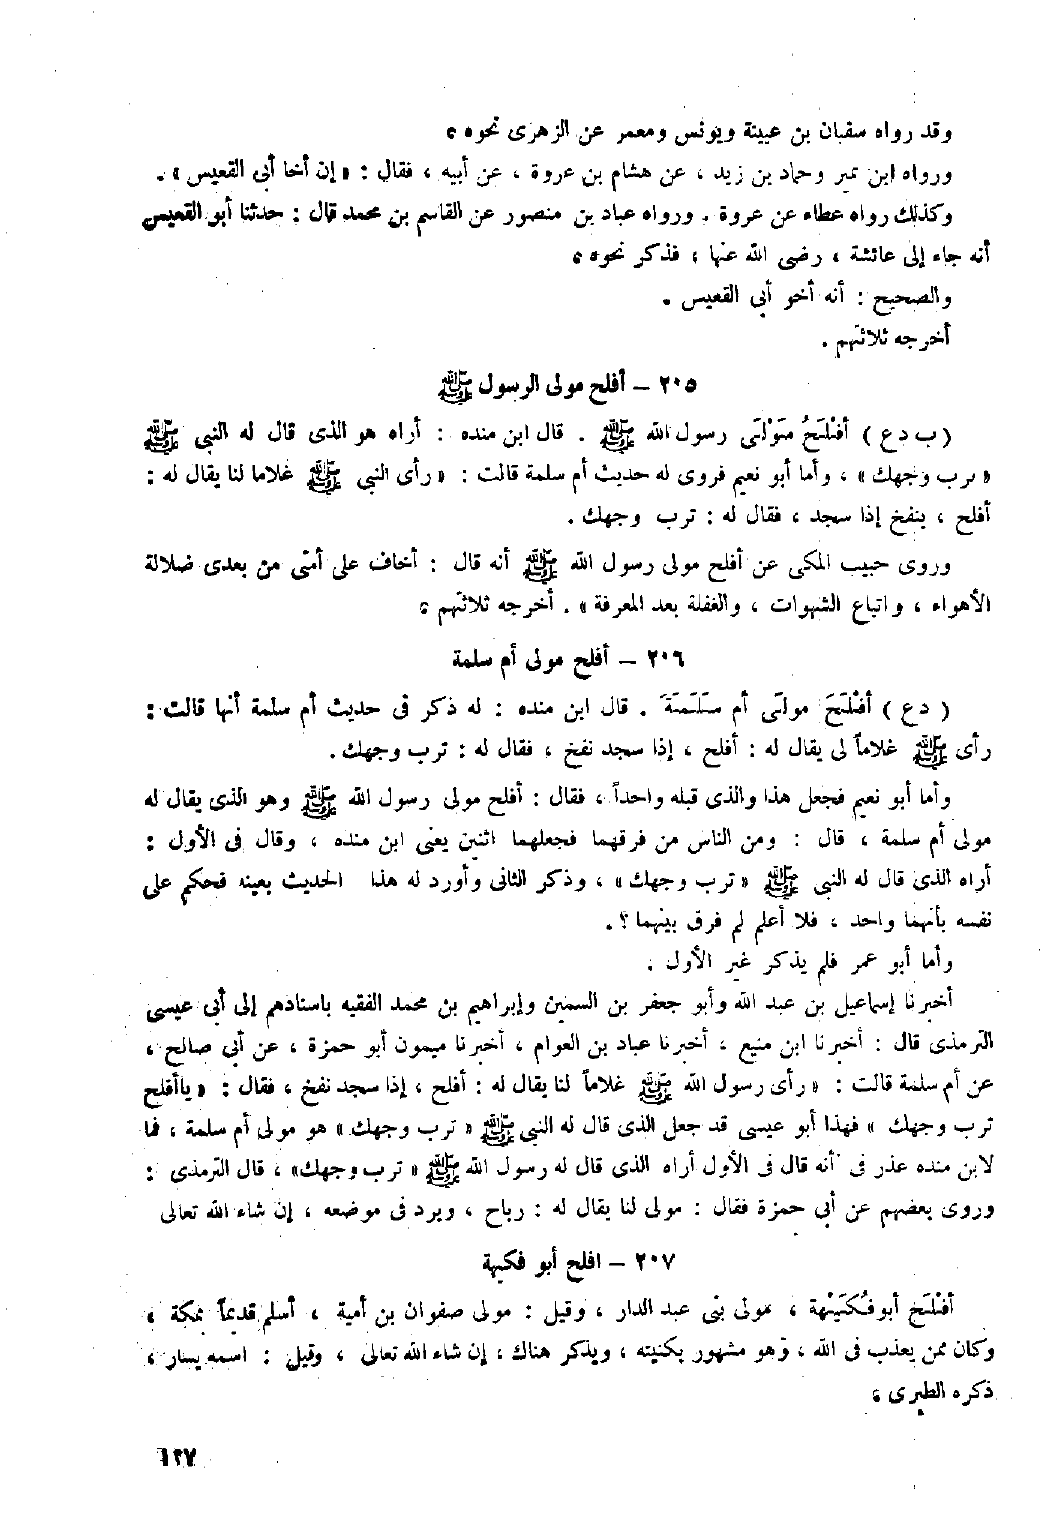 وقد رواه سفيان بن عيينة ويونس ومعمر عن الزهرى نحوه ،
ورواه ابن نمير وحماد بن زيد ، عن هشام بن عروة ، عن أبيه ، فقال : « إن أخا أبى القعيس » .
وكذلك رواه عطاء عن عروة . ورواه عباد بن منصور عن القاسم بن محمد قال : حدثنا أبو القعيس
أنه جاء إلى عائشة ، رضى الله عنها ، فذكر نحوه ،
والصحيح : أنه أخو أبى القعيس .
أخرجه ثلاثتهم .
٢٠٥ – أفلح مولى الرسول ﷺ
( ب د ع ) أَفْلَحُ مَوْلَى رسول الله ﷺ . قال ابن منده : أراه هو الذى قال له النبى ﷺ
« ترب وجهك » ، وأما أبو نعيم فروى له حديث أم سلمة قالت : « رأى النبى ﷺ غلاما لنا يقال له :
أفلح ، ينفخ إذا سجد ، فقال له : ترب وجهك .
وروى حبيب المكى عن أفلح مولى رسول الله ﷺ أنه قال : أخاف على أمتى من بعدى ضلالة
الأهواء ، واتباع الشهوات ، والغفلة بعد المعرفة » . أخرجه ثلاثتهم ،
٢٠٦ – أفلح مولى أم سلمة
( د ع ) أَفْلَحَ مولَى أم سَلَمَةَ . قال ابن منده : له ذكر فى حديث أم سلمة أنها قالت :
رأى ﷺ غلاماً لى يقال له : أفلح ، إذا سجد نفخ ، فقال له : ترب وجهك .
وأما أبو نعيم فجعل هذا والذى قبله واحداً ، فقال : أفلح مولى رسول الله ﷺ وهو الذى يقال له
مولى أم سلمة ، قال : ومن الناس من فرقهما فجعلهما اثنين يعنى ابن منده ، وقال فى الأول :
أراه الذى قال له النبى ﷺ « ترب وجهك » ، وذكر الثانى وأورد له هذا الحديث بعينه فحكم على
نفسه بأنهما واحد ، فلا أعلم لم فرق بينهما ؟ .
وأما أبو عمر فلم يذكر غير الأول .
أخبرنا إسماعيل بن عبد الله وأبو جعفر بن السمين وإبراهيم بن محمد الفقيه باسنادهم إلى أبى عيسى
الترمذى قال : أخبرنا ابن منيع ، أخبرنا عباد بن العوام ، أخبرنا ميمون أبو حمزة ، عن أبى صالح ،
عن أم سلمة قالت : « رأى رسول الله ﷺ غلاماً لنا يقال له : أفلح ، إذا سجد نفخ ، فقال : « ياأفلح
ترب وجهك » فهذا أبو عيسى قد جعل الذى قال له النبى ﷺ « ترب وجهك » هو مولى أم سلمة ، فما
لابن منده عذر فى أنه قال فى الأول أراه الذى قال له رسول الله ﷺ « ترب وجهك» ، قال الترمذى :
وروى بعضهم عن أبى حمزة فقال : مولى لنا يقال له : رباح ، ويرد فى موضعه ، إن شاء الله تعالى
٢٠٧ – افلح أبو فكيهة
أَفْلَح أبو فُكَيْهة ، مولى بنى عبد الدار ، وقيل : مولى صفوان بن أمية ، أسلم قديماً بمكة ،
وكان ممن يعذب فى الله ، وهو مشهور بكنيته ، ويذكر هناك ، إن شاء الله تعالى ، وقيل : اسمه يسار ،
ذكره الطبرى ،
١٢٧